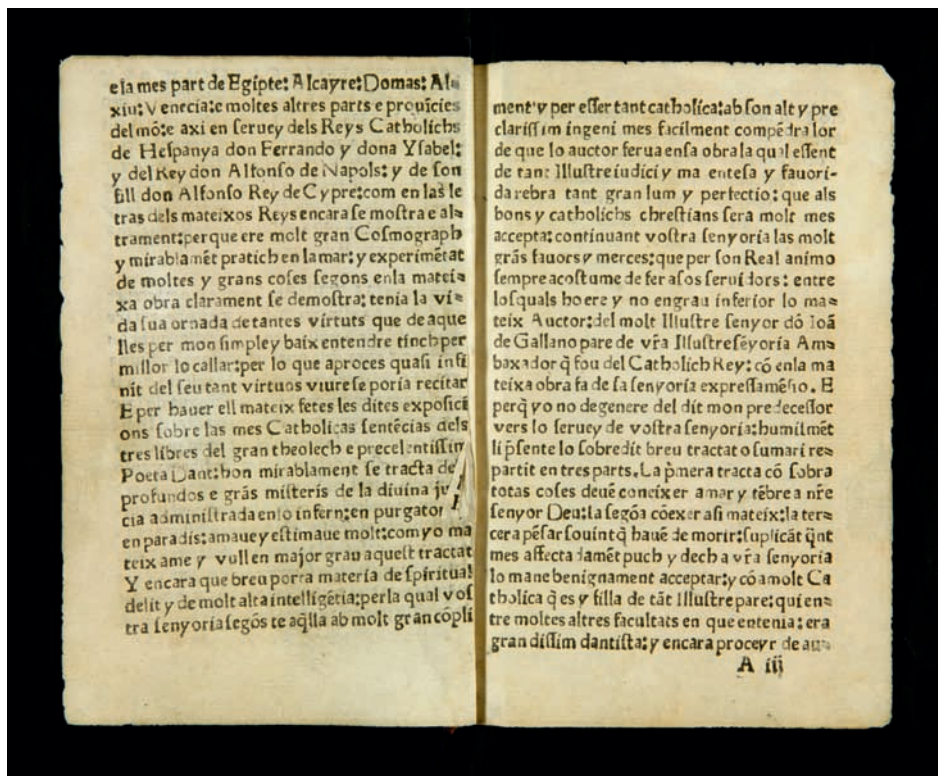 e la mes part de Egipte: Alcayre: Domas: Al⸗
xiu: Venecia: e moltes altres parts e prouĩcies
del mõ: e axi en seruey dels Reys Catholichs
de Hespanya don Ferrando y dona Ysabel:
y del Rey don Alfonso de Napols: y de son
fill don Alfonso Rey de Cypre: com en las le
tras dels mateixos Reys encara se mostra e al⸗
trament: perque ere molt gran Cosmograph
y mirablamẽt pratich en la mar: y experimẽtat
de moltes y grans coses segons enla matei⸗
xa obra clarament se demostra: tenia la vi⸗
da sua ornada de tantes virtuts que de aque
lles per mon simple y baix entendre tinch per
millor lo callar: per lo que aproces quasi infi
nit del seu tant virtuos viure se poria recitar
E per hauer ell mateix fetes les dites exposici
ons sobre las mes Catholicas sentẽcias dels
tres libres del gran theolech e precelentissim
Poeta Dant: hon mirablament se tracta de
profundos e grãs misteris de la diuina ju
cia administrada en lo infern: en purgator
en paradis: amaue y estimaue molt: com yo ma
teix ame y vull en major grau aquest tractat
Y encara que breu porra materia de spiritual
delit y de molt alta intelligẽtia: per la qual vos
tra senyoria segõs te aq̃lla ab molt gran cõpli
ment y per esser tant catholica: ab son alt y pre
clarissim ingeni mes facilment compẽdra lor
de que lo auctor serua ensa obra la qual essent
de tant Illustre iudici y ma entesa y fauori⸗
da rebra tant gran lum y perfectio: que als
bons y catholichs chrestians sera molt mes
accepta: continuant vostra senyoria las molt
grãs fauors y merces: que per son Real animo
sempre acostume de fer a sos seruidors: entre
losquals ho ere y no en grau inferior lo ma⸗
teix Auctor: del molt Illustre senyor dõ Ioã
de Gallano pare de vr̃a Illustre sẽyoria Am⸗
baxador q̃ fou del Catholich Rey: cõ en la ma
teixa obra fa de sa senyoria expressamẽtio. E
perq̃ yo no degenere del dit mon predecessor
vers lo seruey de vostra senyoria: humilmẽt
li p̃sente lo sobredit breu tractat o sumari re⸗
partit en tres parts. La p̃mera tracta cõ sobra
totas coses deuẽ coneixer amar y tẽbre a nr̃e
senyor Deu: la segõa cõexer asi mateix: la ter⸗
cera pẽsar souint q̃ hauẽ de morir: suplicãt q̃nt
mes affectadamẽt puch y dech a vr̃a senyoria
lo mane benignament acceptar: y cõ a molt Ca
tholica q̃ es y filla de tãt Illustre pare: qui en⸗
tre moltes altres facultats en que entenia: era
grandissim dantista: y encara proceyr de au⸗
A iij